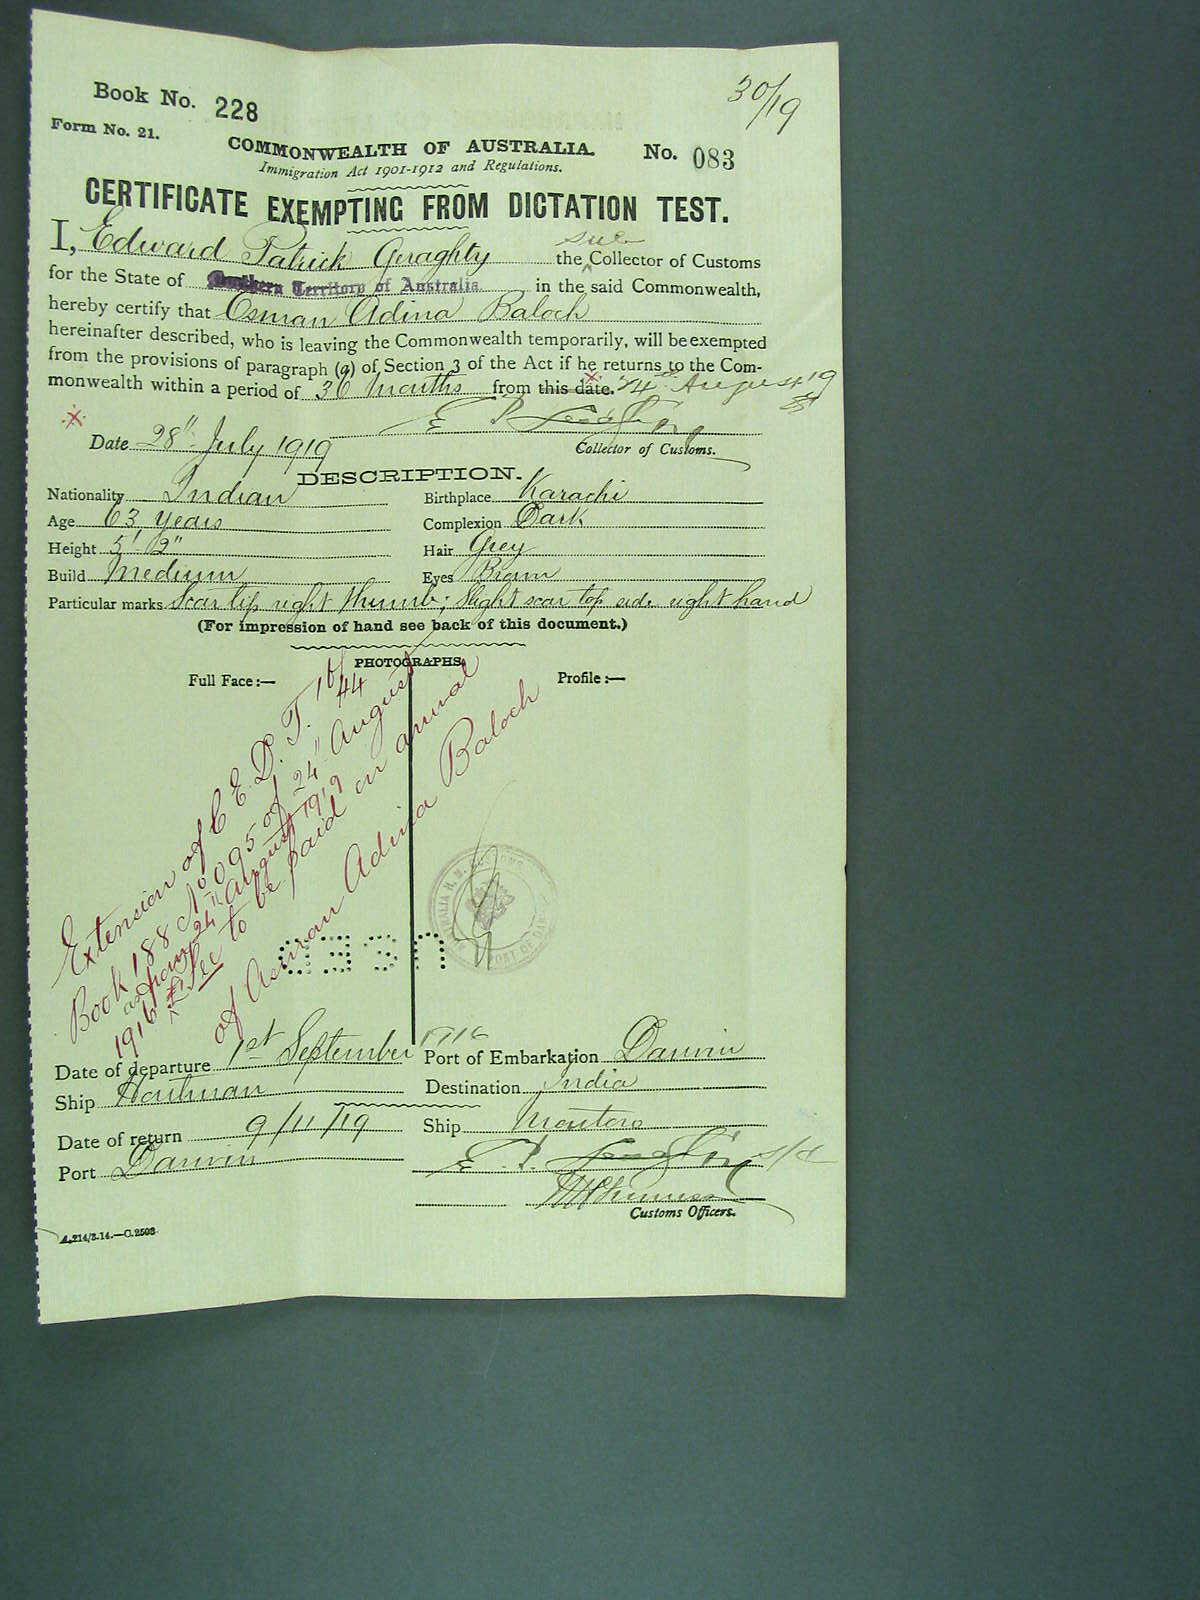 30/19
Book No. 228
Form No. 21.
COMMONWEALTH OF AUSTRALIA. No. 083
Immigration Act 1901-1912 and Regulations.
CERTIFICATE EXEMPTING FROM DICTATION TEST.
Sub
I, Edward Patrick Geraghty the Collector of Customs
for the State of Northern Territory of Australia in the said Commonwealth,
hereby certify that Osman Adina Baloch
hereinafter described, who is leaving the Commonwealth temporarily, will be exempted
from the provisions of paragraph (a) of Section 3 of the Act if he returns to the Com-
monwealth within a period of 36 months from this date. 24th August 19
Date 28" July 1919
Collector of Customs.
DESCRIPTION.
Nationality Indian Birthplace Karachi
Age 63 years Complexion Dark
Height 5' 2" Hair Grey
Build Medium Eyes Brown
Particular marks Scar tip right thumb; slight scar top side right hand
(For impression of hand see back of this document.)
PHOTOGRAPHS.
Full Face:— Profile:—
Extension of C.E.D.T. 16/44
Book 188 No 095 of 24" August
1916
24" August 1919
£1 Fee to be paid on arrival
of Osman Adina Baloch
H. M. CUSTOMS
PORT OF DARWIN
Date of departure 1st September 1916 Port of Embarkation Darwin
Ship Houtman Destination India
Date of return 9/11/19 Ship Montoro
Port Darwin
Customs Officers.
A.214/3.14.—C.2503